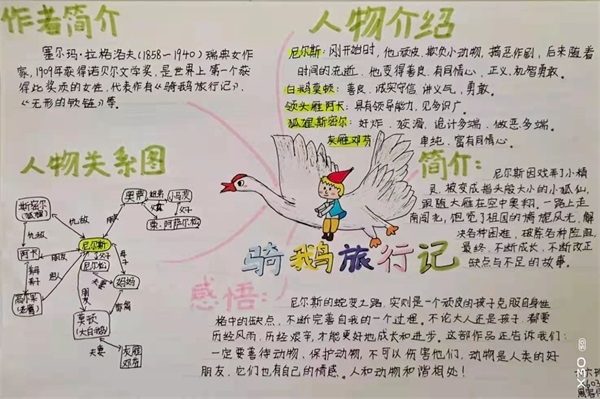 作者简介
塞尔玛·拉格洛夫(1858-1940)瑞典女作
家,1909年获得诺贝尔文学奖,是世界上第一个获
得此奖项的女性,代表作有《骑鹅旅行记》、
《无形的锁链》等。
人物介绍
尼尔斯:刚开始时,他顽皮、欺负小动物、搞恶作剧,后来随着
时间的流逝,他变得善良、有同情心、正义、机智勇敢。
白鹅莫顿:善良、诚实守信、讲义气、勇敢。
领头雁阿卡:具有领导能力、见多识广。
狐狸斯密尔:奸诈、狡猾、诡计多端、做恶多端。
灰雁邓芬:单纯、富有同情心。
人物关系图
斯密尔
(狐狸)
仇敌
奥萨
姐弟
小马茨
父子
朋友
尼尔斯
仇敌
父子
母子
阿卡
尼尔松
夫妻
妈妈
恩人
朋友
莫顿
(大白鹅)
夫妻
灰雁
邓芬
简介:
尼尔斯因戏弄了小精
灵,被变成指头般大小的小狐仙,
跟随大雁在空中奥翔。一路上走
南闯北,饱览了祖国的情旭风光,解
决各种困难,破除各种险阻,
最终,不断成长,不断改正
缺点与不足的故事。
骑鹅旅行记
感悟:
尼尔斯的蜕变之路,实则是一个顽皮的孩子克服自身性
格中的缺点,不断完善自我的一个过程。不论大人还是孩子,都要
历经风雨,历经艰辛,才能更好地成长和进步。这部作品正告诉我们:
一定要善待动物,保护动物,不可以伤害他们,动物是人类的好
朋友,它们也有自己的情感。人和动物和谐相处!